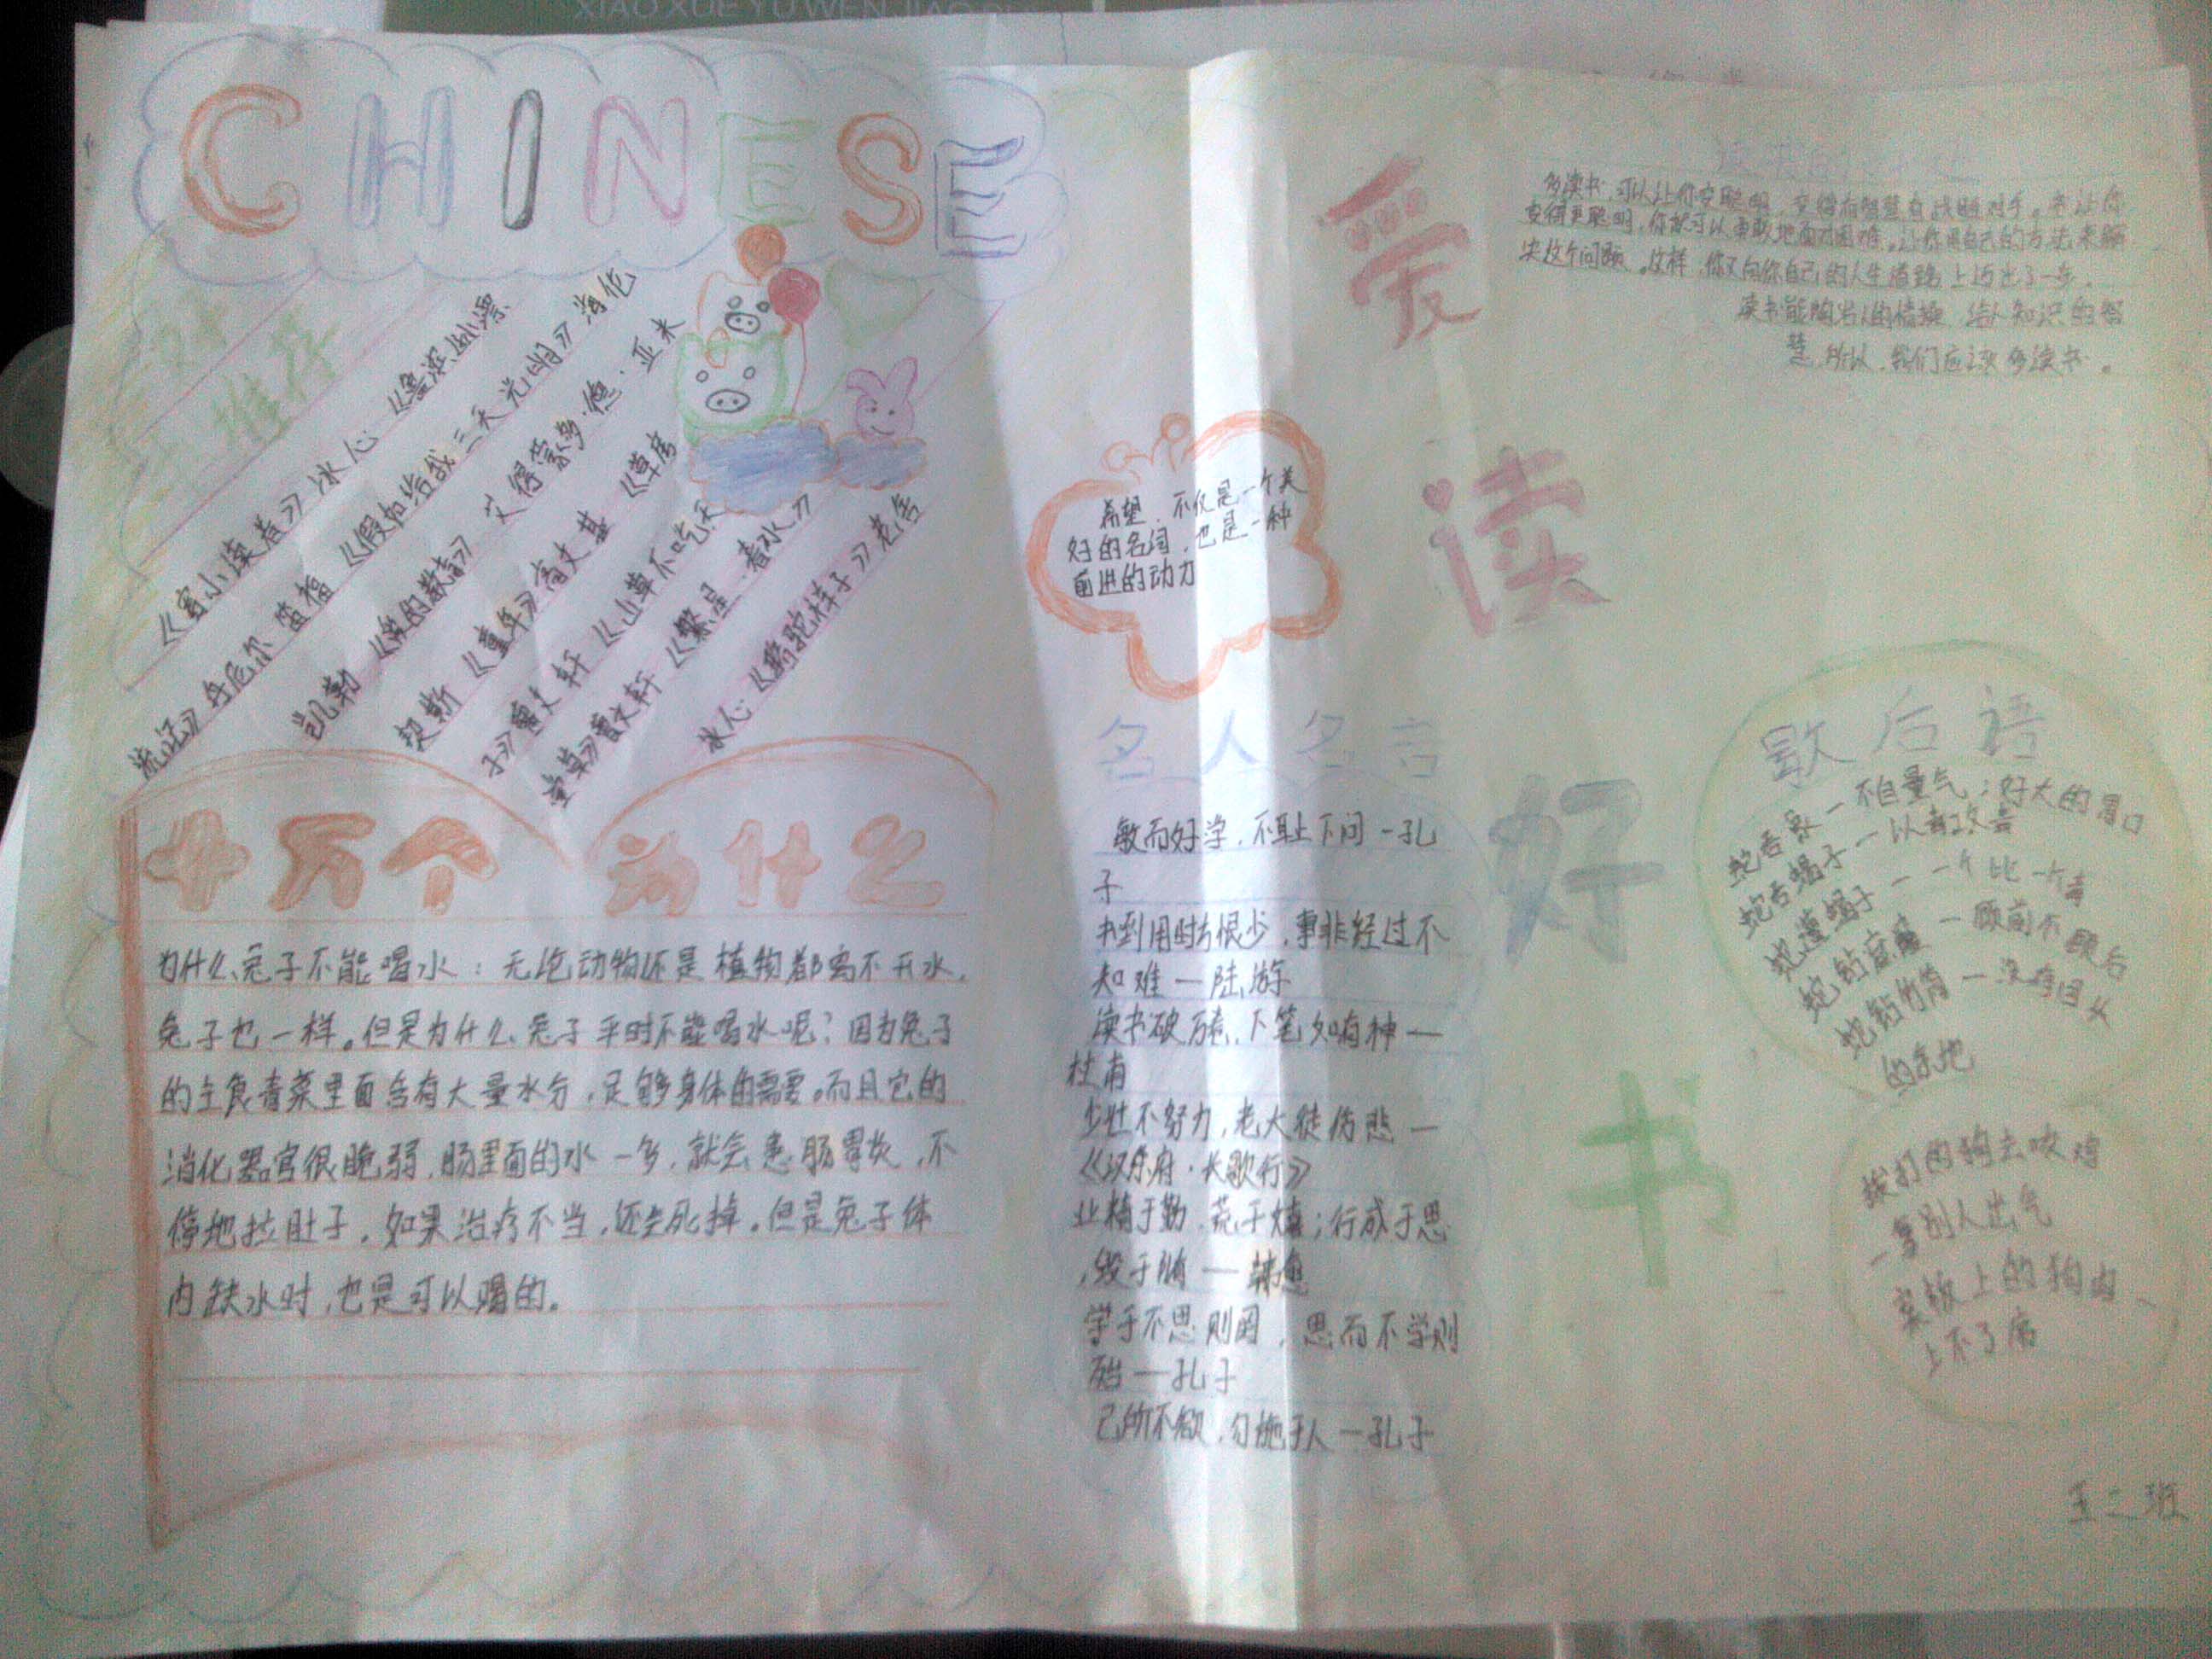 XIAO XUE YU WEN JIAO
CHINESE
好书
推荐
《寄小读者》冰心 《鲁滨逊漂
流记》丹尼尔 笛福 《假如给我三天光明》海伦
凯勒 《爱的教育》 艾得蒙多·德·亚米
契斯 《童年》高尔基 《草房
子》曹文轩 《山羊不吃天
堂草》曹文轩 《繁星·春水》
冰心 《骆驼祥子》老舍
十万个为什么
为什么兔子不能喝水：无论动物还是植物都离不开水，
兔子也一样。但是为什么兔子平时不能喝水呢？因为兔子
的主食青菜里面含有大量水分，足够身体的需要。而且它的
消化器官很脆弱，肠里面的水一多，就会患肠胃炎，不
停地拉肚子，如果治疗不当，还会死掉。但是兔子体
内缺水时，也是可以喝的。
希望，不仅是一个美
好的名词，也是一种
前进的动力
名人名言
敏而好学，不耻下问—孔
子
书到用时方恨少，事非经过不
知难—陆游
读书破万卷，下笔如有神—
杜甫
少壮不努力，老大徒伤悲—
《汉乐府·长歌行》
业精于勤，荒于嬉；行成于思
，毁于随—韩愈
学于不思则罔，思而不学则
殆—孔子
己所不欲，勿施于人—孔子
爱
读
好
书
读书的好处
多读书，可以让你变聪明，变得有智慧去战胜对手。书让你
变得更聪明，你就可以勇敢地面对困难。让你用自己的方法来解
决这个问题。这样，你又向你自己的人生道路上迈出了一步。
读书能陶冶人的情操，给人知识的智
慧，所以，我们应该多读书。
歇后语
蛇吞象—不自量气；好大的胃口
蛇吞蝎子—以毒攻毒
蛇遭蝎子—一个比一个毒
蛇钻窟窿—顾前不顾后
蛇钻竹筒—没有回头
的余地
挨打的狗去咬鸡
—拿别人出气
案板上的狗肉—
上不了席
五二班